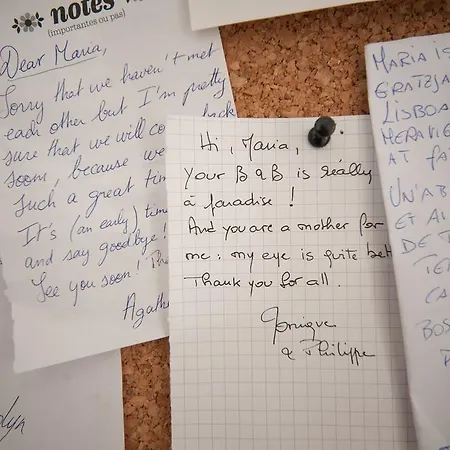 notes
(importantes ou pas)
Dear Maria,
Sorry that we haven't met
each other but I'm pretty
sure that we will co back
soon, because we
Such a great tim
It's (an early) time
and say goodbye!
See you soon!
Agath
Hi, Maria,
your B & B is really
a paradise!
And you are a mother for
me : my eye is quite bet
Thank you for all.
Monique
& Philippe
MARIA IS
GRATZJA
LISBOA
MERAVIG
AT FA
UN'AB
ET AI
DE T
TE
CA
BOS